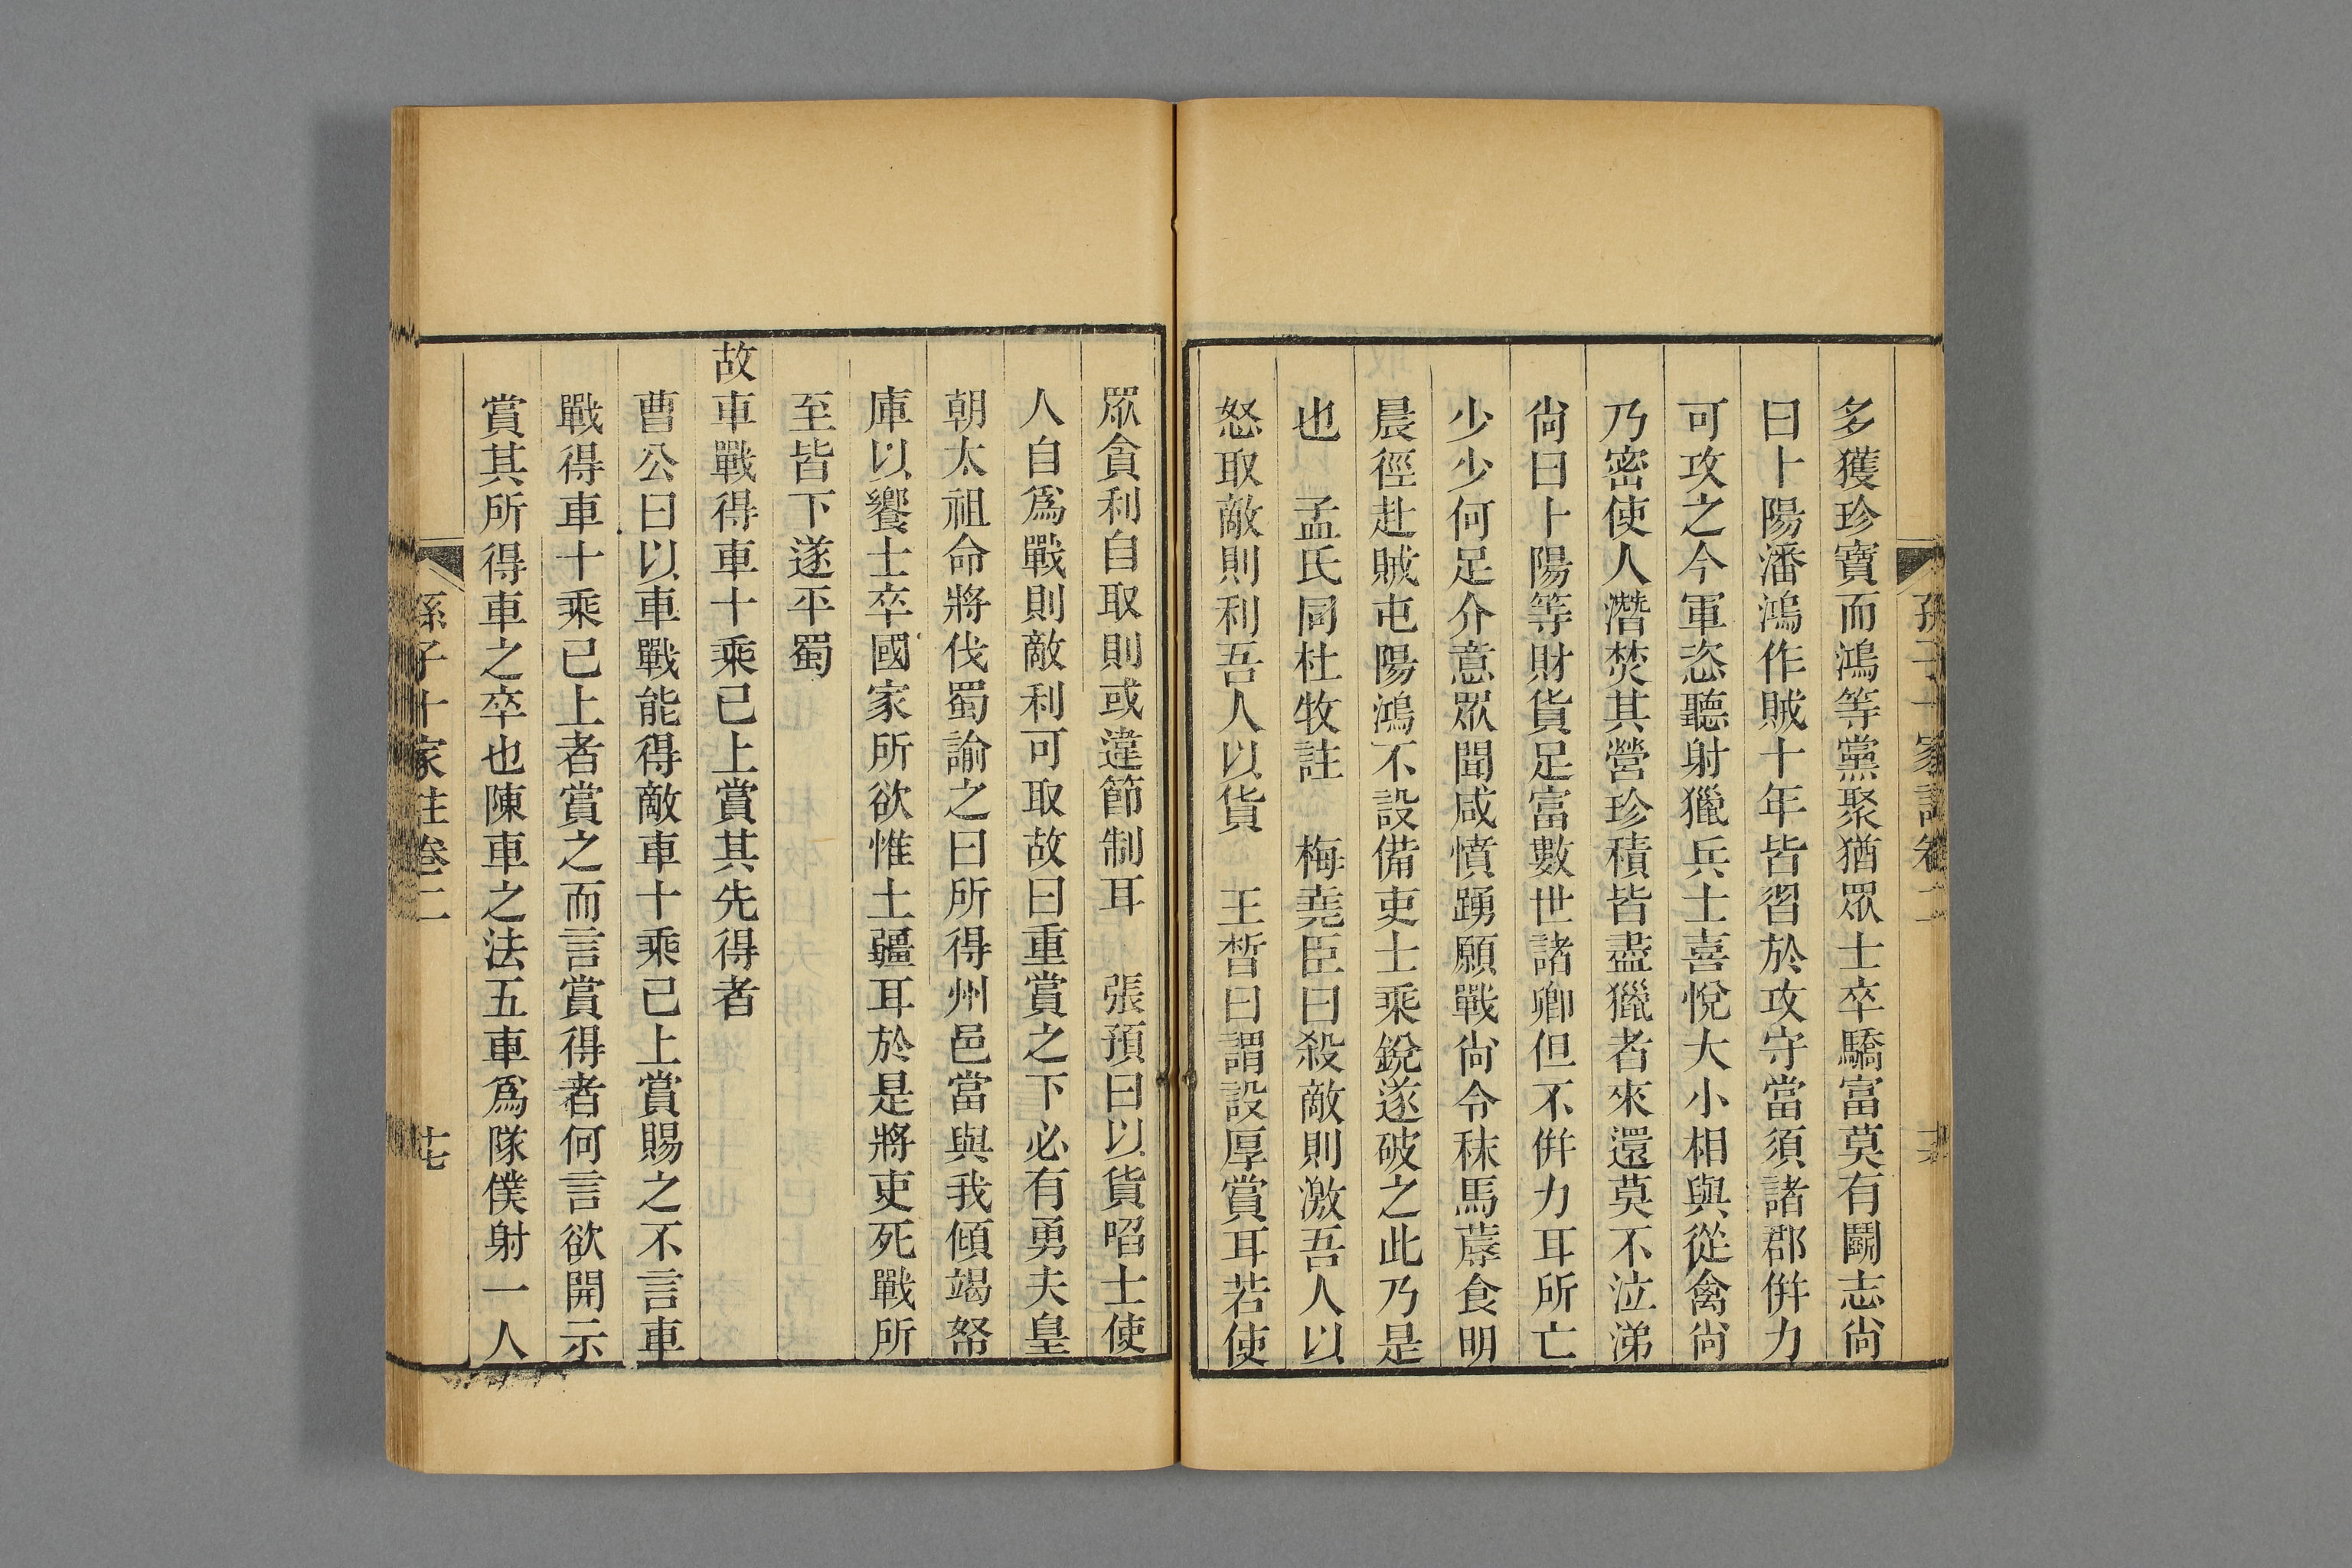 多獲珍寶而鴻等黨聚猶眾士卒驕富莫有鬬志尙
曰卜陽潘鴻作賊十年皆習於攻守當須諸郡併力
可攻之今軍恣聽射獵兵士喜悅大小相與從禽尙
乃密使人潛焚其營珍積皆盡獵者來還莫不泣涕
尙曰卜陽等財貨足富數世諸卿但不併力耳所亡
少少何足介意眾聞咸憤踴願戰尙令秣馬蓐食明
晨徑赴賊屯陽鴻不設備吏士乘銳遂破之此乃是
也　孟氏同杜牧註　梅堯臣曰殺敵則激吾人以
怒取敵則利吾人以貨　王晳曰謂設厚賞耳若使
眾貪利自取則或違節制耳　張預曰以貨啗士使
人自爲戰則敵利可取故曰重賞之下必有勇夫皇
朝太祖命將伐蜀諭之曰所得州邑當與我傾竭帑
庫以饗士卒國家所欲惟土疆耳於是將吏死戰所
至皆下遂平蜀
故車戰得車十乘已上賞其先得者
曹公曰以車戰能得敵車十乘已上賞賜之不言車
戰得車十乘已上者賞之而言賞得者何言欲開示
賞其所得車之卒也陳車之法五車爲隊僕射一人
孫子十家註卷二
十七